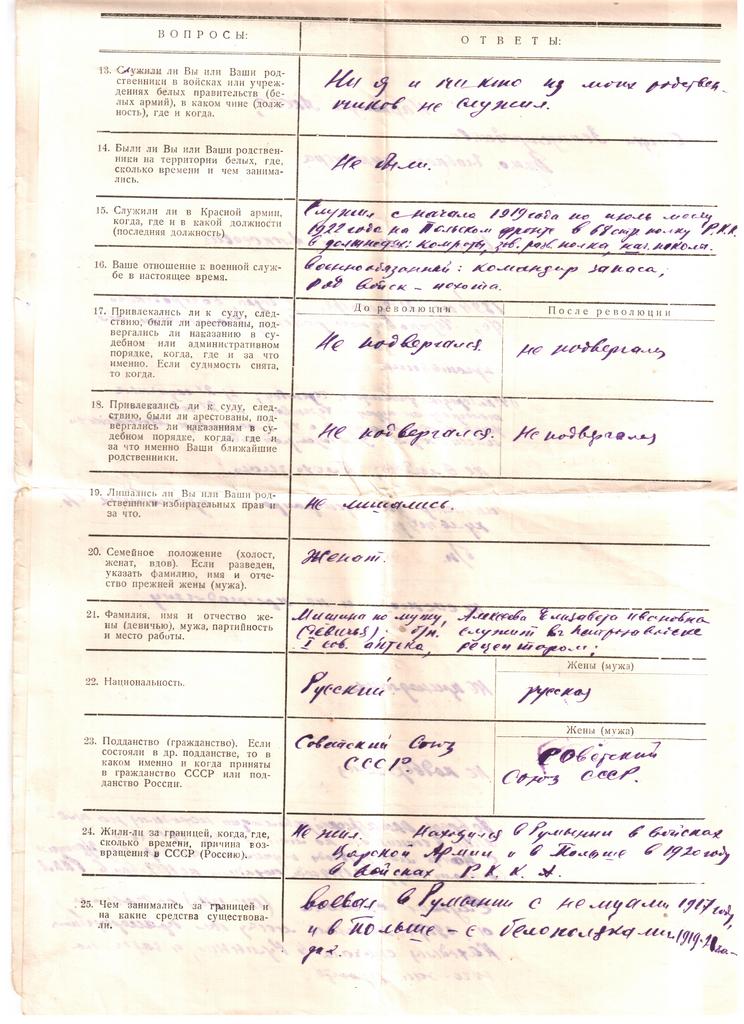 ВОПРОСЫ:
ОТВЕТЫ:
13. Служили ли Вы или Ваши род-
ственники в войсках или учреж-
дениях белых правительств (бе-
лых армий), в каком чине (долж-
ность), где и когда.
Ни я и никто из моих родствен-
ников не служил.
14. Были ли Вы или Ваши родствен-
ники на территории белых, где,
сколько времени и чем занима-
лись.
Не были.
15. Служили ли в Красной армии,
когда, где и в какой должности
(последняя должность).
Служил с начала 1919 года по июль месяц
1922 года на Польском фронте в 68 стр. полку Р.К.К.
в должностях: комроты, зав. разв. полка,
16. Ваше отношение к военной служ-
бе в настоящее время.
военнообязанный: командир запаса;
род войск – пехота.
17. Привлекались ли к суду, след-
ствию, были ли арестованы, под-
вергались ли наказанию в су-
дебном или административном
порядке, когда, где и за что
именно. Если судимость снята,
то когда.
До революции
Не подвергался.
После революции
не подвергался
18. Привлекались ли к суду, след-
ствию, были ли арестованы, под-
вергались ли наказаниям в су-
дебном порядке, когда, где и
за что именно Ваши ближайшие
родственники.
Не подвергался.
Не подвергался
19. Лишались ли Вы или Ваши род-
ственники избирательных прав и
за что.
Не лишались.
20. Семейное положение (холост,
женат, вдов). Если разведен,
указать фамилию, имя и отче-
ство прежней жены (мужа).
Женат.
21. Фамилия, имя и отчество же-
ны (девичью), мужа, партийность
и место работы.
Мишина по мужу, Алексеева Елизавета Ивановна
(девичья) б/п. служит в г. Петрозаводске
I гов. аптека, рецептаром;
22. Национальность.
Русский
Жены (мужа)
русская
23. Подданство (гражданство). Если
состояли в др. подданстве, то в
каком именно и когда приняты
в гражданство СССР или под-
данство России.
Советский Союз
СССР.
Жены (мужа)
Советский
Союз СССР.
24. Жили-ли за границей, когда, где,
сколько времени, причина воз-
вращения в СССР (Россию).
Не жил. Находился в Румынии в войсках
Царской Армии и в Польше в 1920 году
в войсках Р.К.К.А.
25. Чем занимались за границей и
на какие средства существова-
ли.
воевал в Румынии с немцами 1917 году,
и в Польше – с белополяками 1919-21 го-
дах.